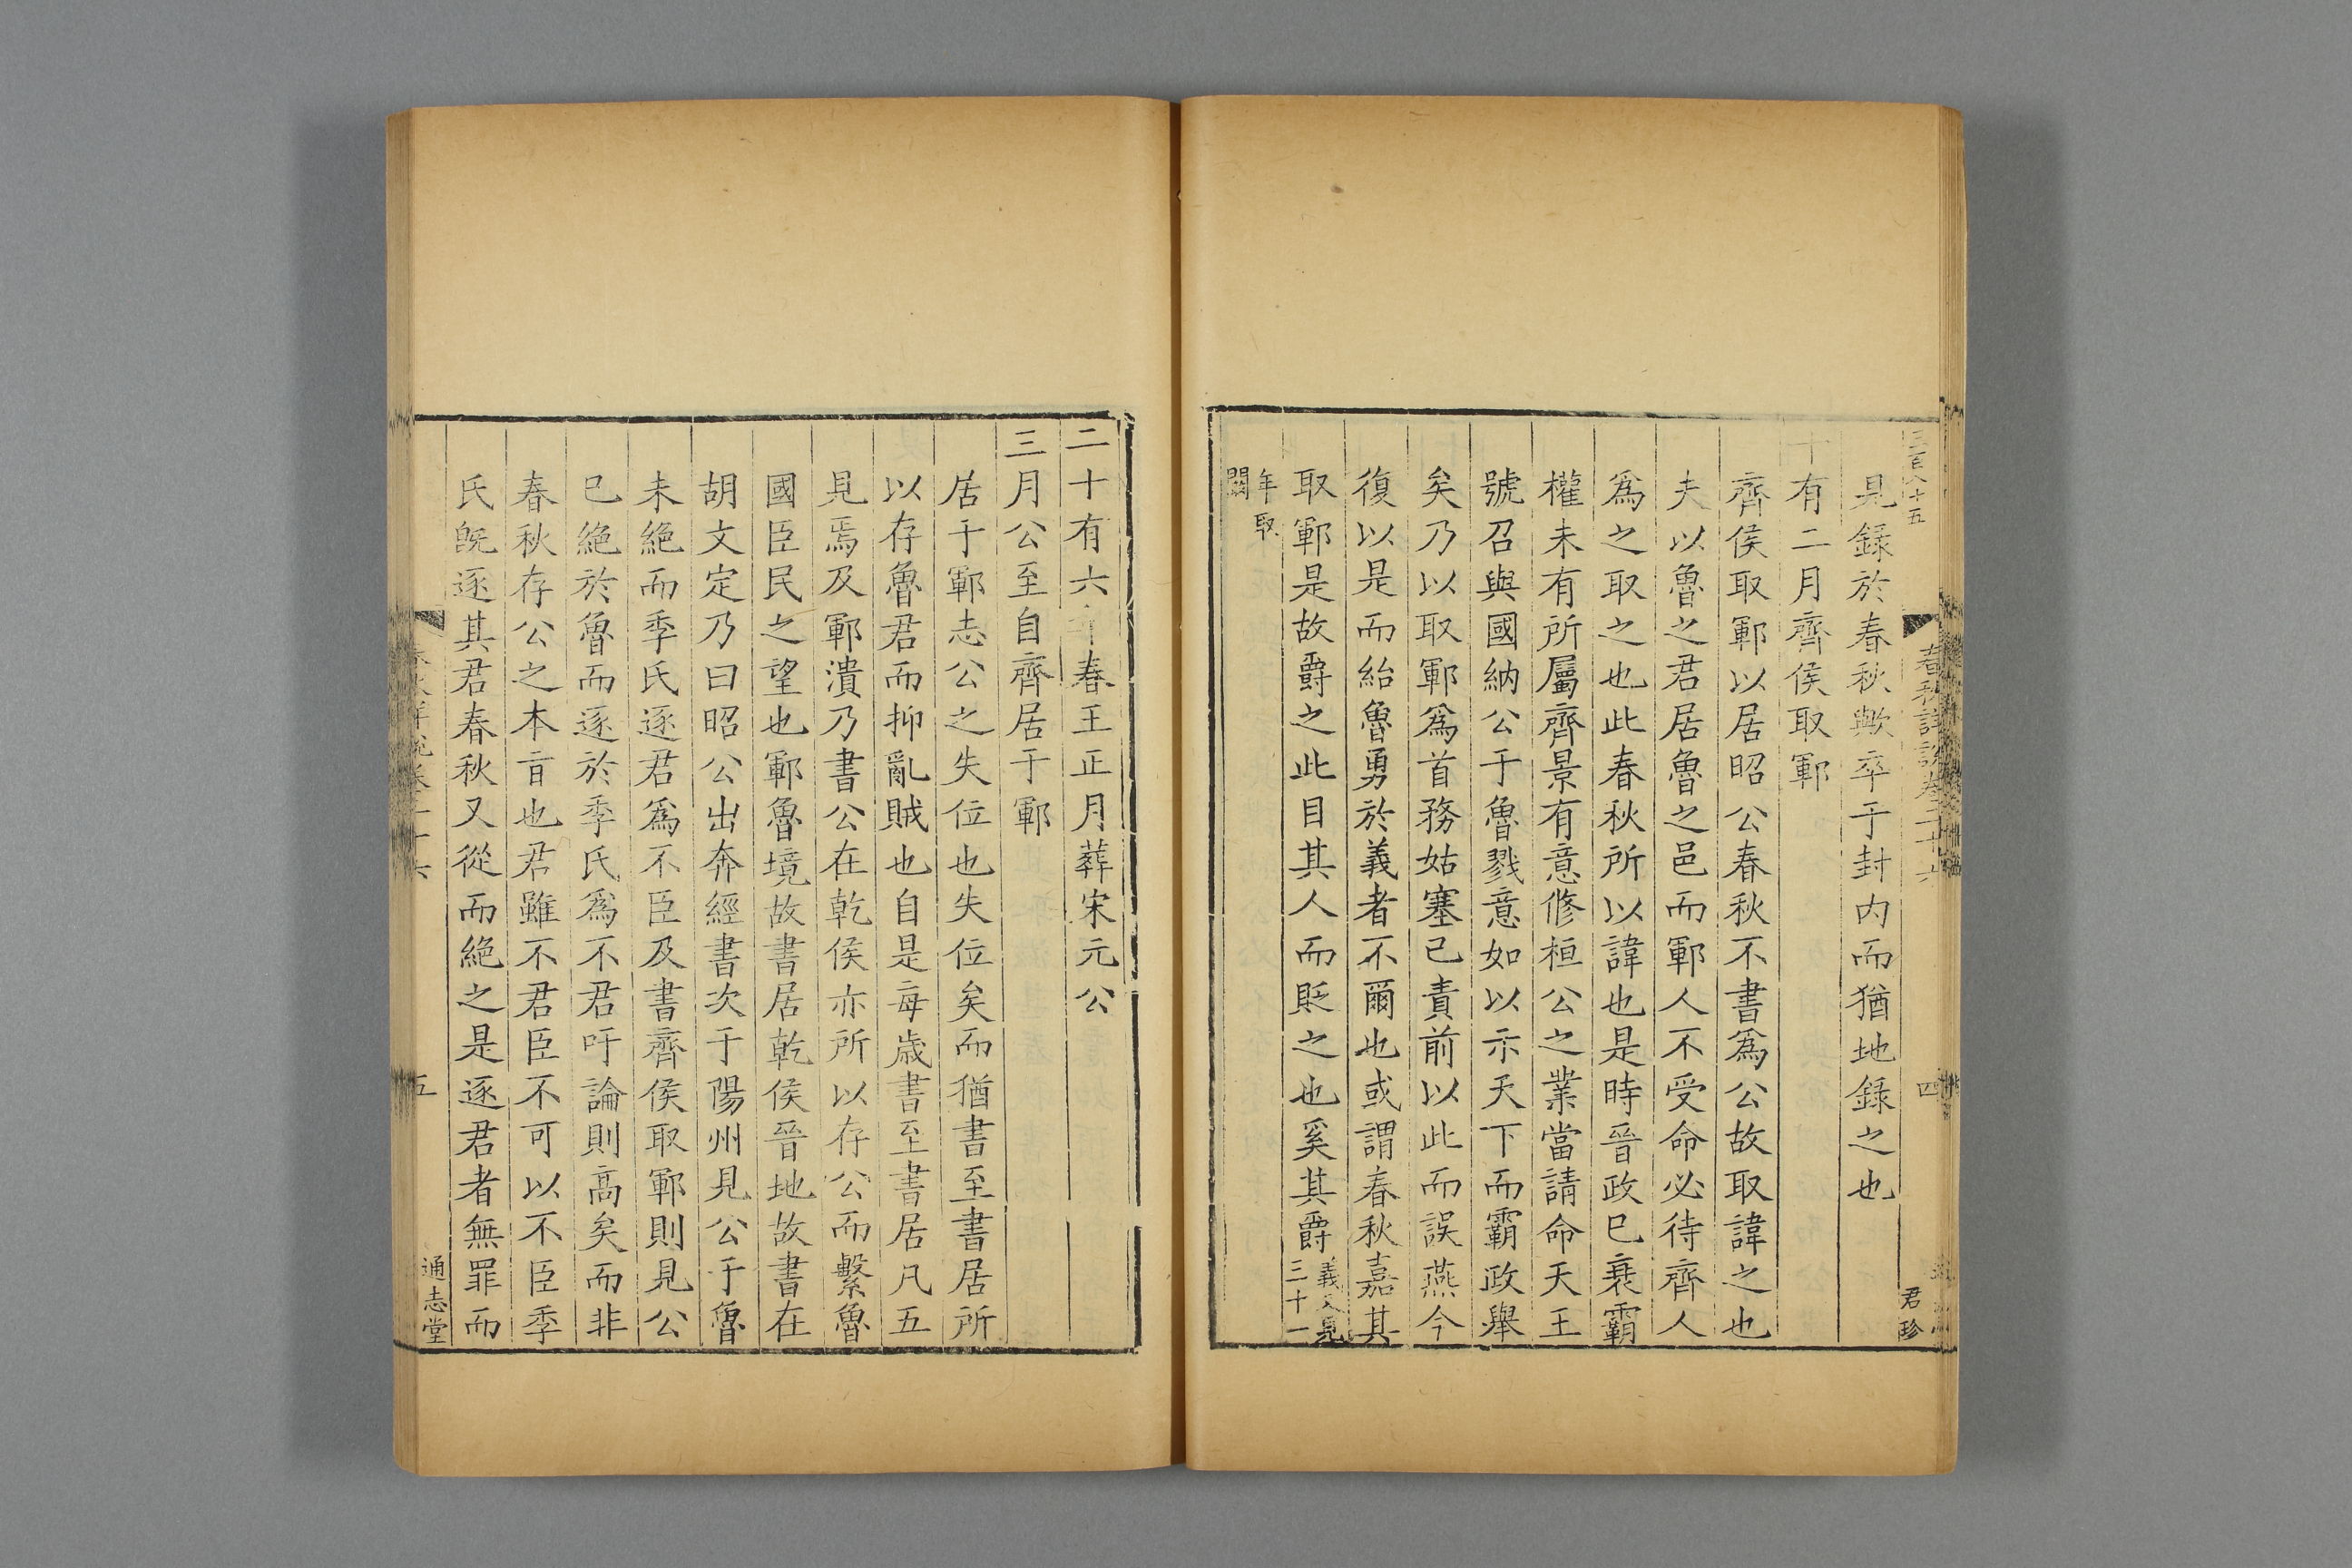 見錄於春秋歟卒于封内而猶地錄之也
十有二月齊侯取鄆
齊侯取鄆以居昭公春秋不書爲公故取諱之也
夫以魯之君居魯之邑而鄆人不受命必待齊人
爲之取之也此春秋所以諱也是時晉政已衰霸
權未有所屬齊景有意脩桓公之業當請命天王
號召與國納公于魯戮意如以示天下而霸政舉
矣乃以取鄆爲首務姑塞己責前以此而誤燕今
復以是而紿魯勇於義者不爾也或謂春秋嘉其
取鄆是故爵之此目其人而貶之也奚其爵義又見三十一
年取闞
春秋詳說卷二十六
四
君珍
二十有六年春王正月葬宋元公
三月公至自齊居于鄆
居于鄆志公之失位也失位矣而猶書至書居所
以存魯君而抑亂賊也自是每歲書至書居凡五
見焉及鄆潰乃書公在乾侯亦所以存公而繫魯
國臣民之望也鄆魯境故書居乾侯晉地故書在
胡文定乃曰昭公出奔經書次于陽州見公于魯
未絕而季氏逐君爲不臣及書齊侯取鄆則見公
已絕於魯而逐於季氏爲不君吁論則高矣而非
春秋存公之本旨也君雖不君臣不可以不臣季
氏旣逐其君春秋又從而絕之是逐君者無罪而
五
通志堂